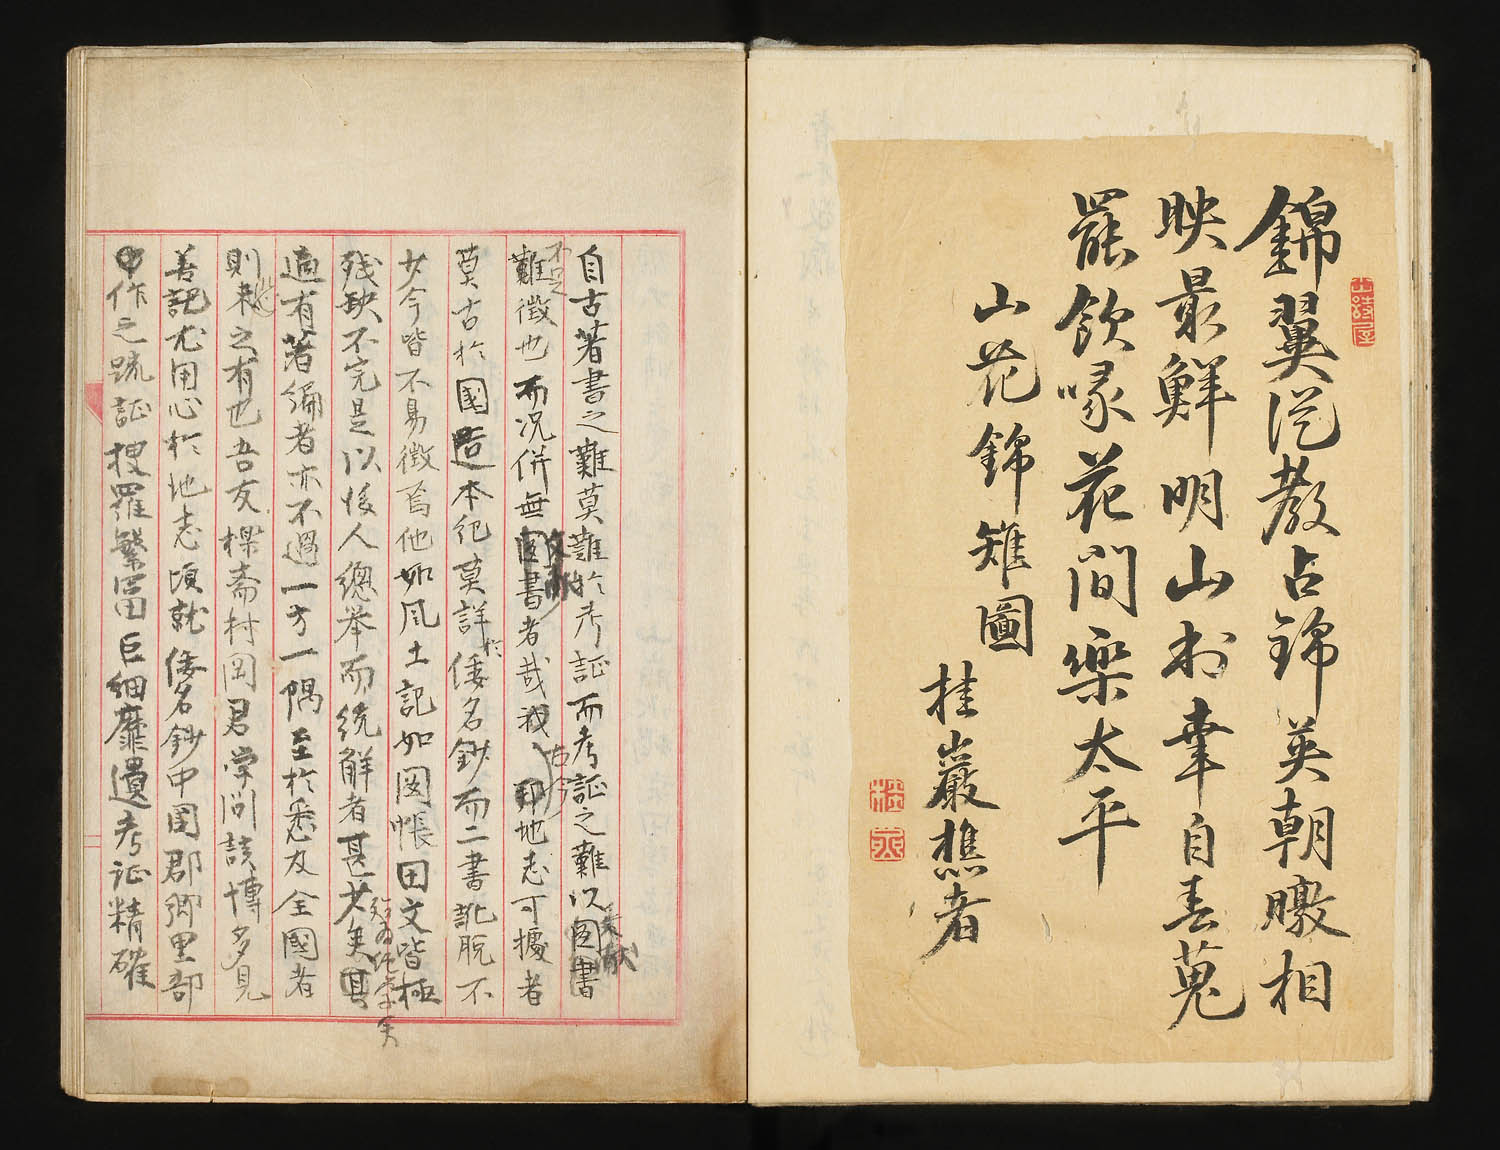 錦翼従教占錦英朝暾相
映最鮮明山村幸自春蒐
罷飲啄花間楽太平
山花錦雉圖
桂巖樵者
自古著書之難莫難於考証而考証之難以図書
文献
不足
難徴也而況併無図書者哉我邦地志可據者
古今
莫古於國造本紀莫詳於倭名鈔而二書訛脱不
少今皆不易徴焉他如風土記如図帳田文皆極
残缺不完是以後人總挙而統解者甚少矣
適有著編者亦不過一方一隅至於悉及全國者
則未之有也吾友櫟斎村岡君学問該博多見
善記尤用心於地志頃就倭名鈔中国郡郷里部
作之疏証捜羅繁富巨細靡遺考証精確